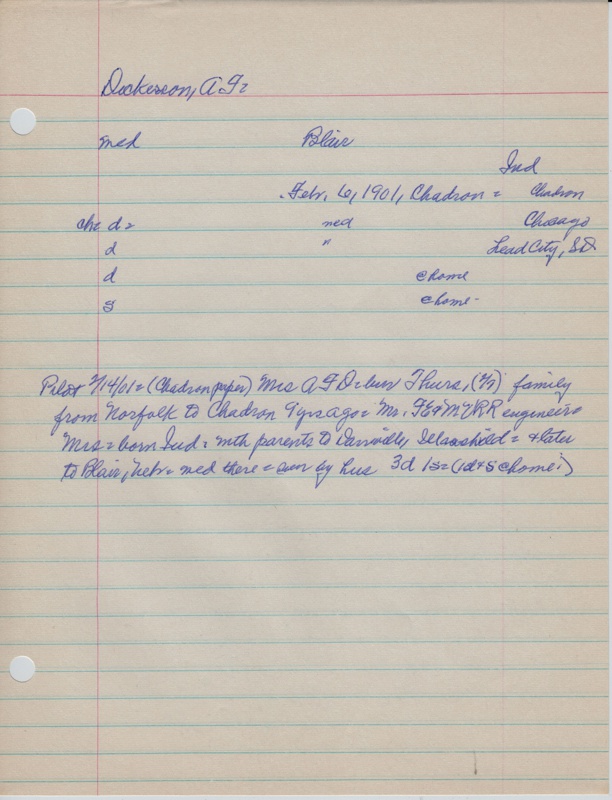 Dickerson, A F=
med Blair
Ind
Febr. 6, 1901, Chadron = Chadron
ch= d= med Chicago
d " Lead City, SD
d @ home
s @ home-
Pilot 2/14/01= (Chadron paper) Mrs A F D= bur Thurs, (2/7) family
from Norfolk to Chadron 9 yrs ago= Mr. FE&MVRR engineer=
Mrs= born Ind= with parents to Danville, Ill as child= & later
to Blair, Nebr= med there= sur by hus 3d 1s= (1d & s @ home=)